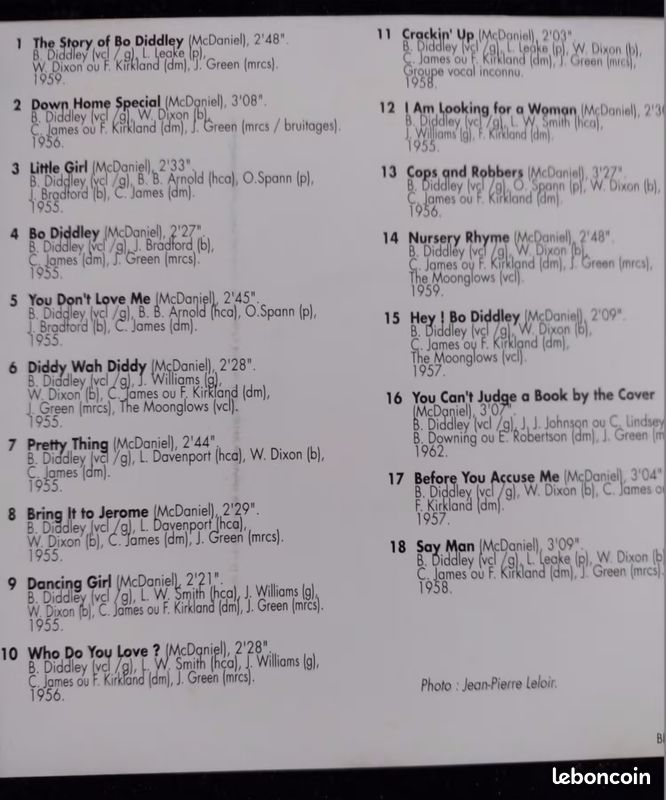 1 The Story of Bo Diddley (McDaniel), 2'48".
B. Diddley (vcl /g), L. Leake (p),
W. Dixon ou F. Kirkland (dm), J. Green (mrcs).
1959.
2 Down Home Special (McDaniel), 3'08".
B. Diddley (vcl /g), W. Dixon (b),
C. James ou F. Kirkland (dm), J. Green (mrcs / bruitages).
1956.
3 Little Girl (McDaniel), 2'33".
B. Diddley (vcl /g), B. B. Arnold (hca), O.Spann (p),
J. Bradford (b), C. James (dm).
1955.
4 Bo Diddley (McDaniel), 2'27".
B. Diddley (vcl /g), J. Bradford (b),
C. James (dm), J. Green (mrcs).
1955.
5 You Don't Love Me (McDaniel), 2'45".
B. Diddley (vcl /g), B. B. Arnold (hca), O.Spann (p),
J. Bradford (b), C. James (dm).
1955.
6 Diddy Wah Diddy (McDaniel), 2'28".
B. Diddley (vcl /g), J. Williams (g),
W. Dixon (b), C. James ou F. Kirkland (dm)
J. Green (mrcs), The Moonglows (vcl).
1955.
7 Pretty Thing (McDaniel), 2'44"
B. Diddley (vcl /g), L. Davenport (hca), W. Dixon (b),
C. James (dm).
1955.
8 Bring It to Jerome (McDaniel), 2'29".
B. Diddley (vcl /g), L. Davenport (hca),
W. Dixon (b), C. James (dm), J. Green (mrcs).
1955.
9 Dancing Girl (McDaniel), 2'21".
B. Diddley (vcl /g), L. W. Smith (hca), J. Williams (g),
W. Dixon (b), C. James ou F. Kirkland (dm), J. Green (mrcs).
1955.
10 Who Do You Love ? (McDaniel), 2'28"
B. Diddley (vcl /g), L. W. Smith (hca), J. Williams (g),
C. James ou F. Kirkland (dm), J. Green (mrcs).
1956.
11 Crackin' Up (McDaniel), 2'03".
B. Diddley (vcl /g), L. Leake (p), W. Dixon (b),
C. James ou F. Kirkland (dm), J. Green (mrcs),
Groupe vocal inconnu.
1958.
12 I Am Looking for a Woman (McDaniel), 2'30
B. Diddley (vcl /g), L. W. Smith (hca),
J. Williams (g), F. Kirkland (dm).
1955.
13 Cops and Robbers (McDaniel), 3'27".
B. Diddley (vcl /g), O. Spann (p), W. Dixon (b),
C. James ou F. Kirkland (dm).
1956.
14 Nursery Rhyme (McDaniel), 2'48".
B. Diddley (vcl /g), W. Dixon (b),
C. James ou F. Kirkland (dm), J. Green (mrcs),
The Moonglows (vcl).
1959.
15 Hey ! Bo Diddley (McDaniel), 2'09".
B. Diddley (vcl /g), W. Dixon (b),
C. James ou F. Kirkland (dm),
The Moonglows (vcl).
1957.
16 You Can't Judge a Book by the Cover
(McDaniel), 3'07".
B. Diddley (vcl /g), J. J. Johnson ou C. Lindsey
B. Downing ou E. Robertson (dm), J. Green (m
1962.
17 Before You Accuse Me (McDaniel), 3'04"
B. Diddley (vcl /g), W. Dixon (b), C. James o
F. Kirkland (dm).
1957.
18 Say Man (McDaniel), 3'09".
B. Diddley (vcl /g), L. Leake (p), W. Dixon (b
C. James ou F. Kirkland (dm), J. Green (mrcs).
1958.
Photo : Jean-Pierre Leloir.
leboncoin